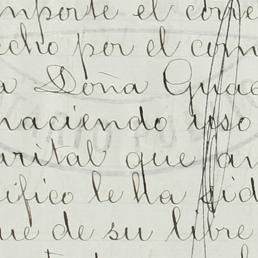 mporte el corre
echo por el com
a Doña Gua
haciendo uso
arital que an
ifico le ha sid
ue de su libre